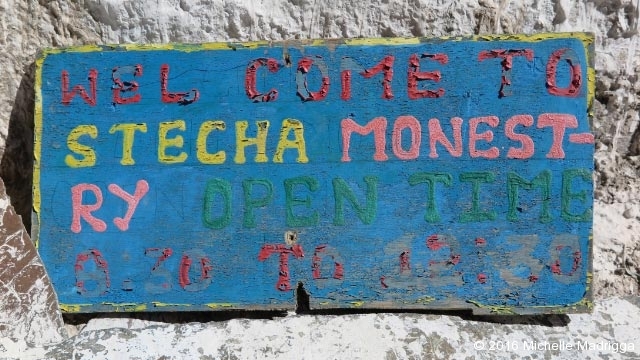 WEL COME TO
STECHA MONEST-
RY OPEN TIME
TO
© 2016 Michelle Madrigga